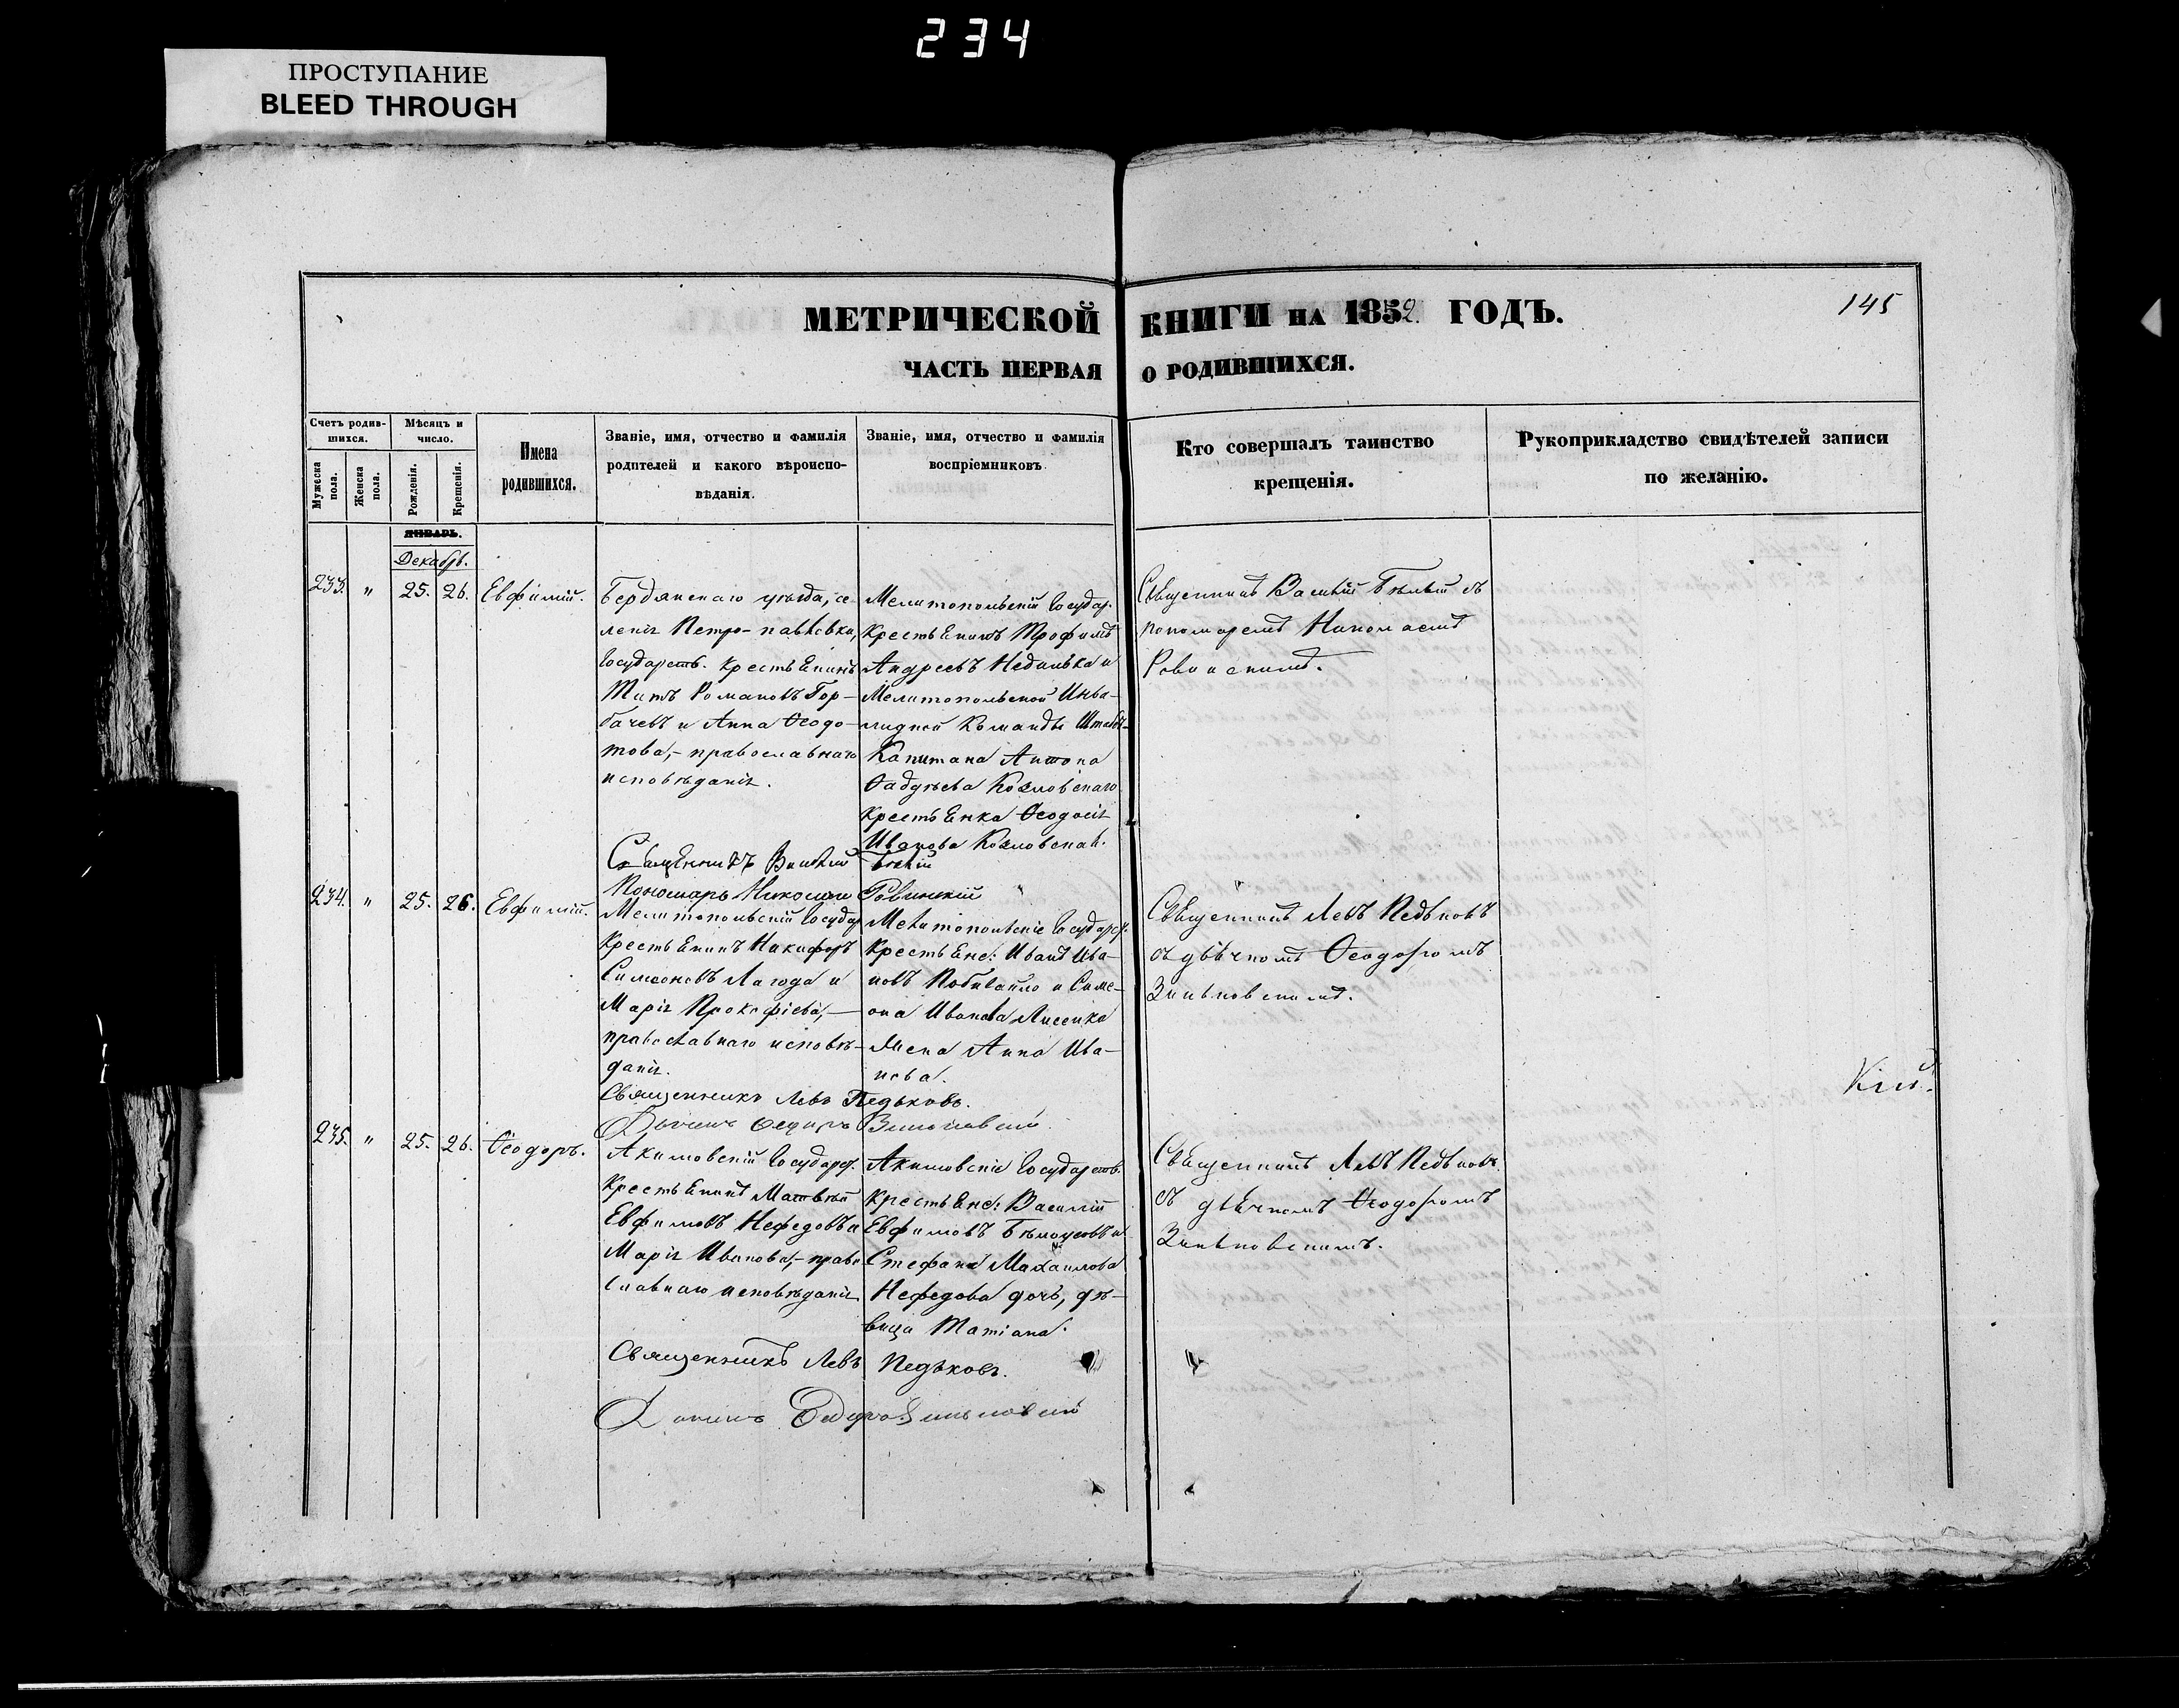 234
ПРОСТУПАНИЕ
BLEED THROUGH
МЕТРИЧЕСКОЙ КНИГИ НА 1852 ГОДЪ.
145
ЧАСТЬ ПЕРВАЯ О РОДИВШИХСЯ.
Счетъ родив-
шихся.
Мужеска
пола.
Женска
пола.
Мѣсяцъ и
число.
Рожденія.
Крещенія.
Имена
родившихся.
Званіе, имя, отчество и фамилія
родителей и какого вѣроиспо-
вѣданія.
Званіе, имя, отчество и фамилія
воспріемниковъ.
Кто совершалъ таинство
крещенія.
Рукоприкладство свидѣтелей записи
по желанію.
ЯНВАРЬ.
Декабрь.
233. " 25. 26. Евфимій.
Бердянскаго уѣзда, се-
ленія Петро-павловки,
Государств. крестьянинъ
Титъ Романовъ Гор-
бачевъ и Анна Ѳеодо-
това,- православнаго
исповѣданія.
Мелитопольскій Государ.
крестьянинъ Трофимъ
Андреевъ Недилька и
Мелитопольской Инва-
лидной Команды Штабъ-
Капитана Антона
Ѳадѣева Козловскаго
крестьянка Ѳеодосія
Иванова Козловская.
Священникъ Василій Бѣлый съ
пономаремъ Николаемъ
Ровинскимъ.
Священникъ Василій Бѣлый
Пономарь Николай Ровинскій
234. " 25. 26. Евфимій.
Мелитопольскій Государ.
крестьянинъ Никифоръ
Симеоновъ Лагода и
Марія Прокофіева,-
православнаго исповѣ-
данія.
Мелитопольскіе Государ.
крестьяне: Иванъ Ива-
новъ Побигайло и Симе-
она Иванова Лисенка
жена Анна Ива-
нова.
Священникъ Левъ Педьковъ
съ дьячкомъ Ѳеодоромъ
Зиньковскимъ.
Священникъ Левъ Педьковъ.
Дьячекъ Ѳедоръ Зиньковскій
235. " 25. 26. Ѳеодоръ.
Акимовскій Государ.
крестьянинъ Матвѣй
Евфимовъ Нефедовъ и
Марія Иванова,- право
славнаго исповѣданія.
Акимовскіе Государств.
крестьяне: Василій
Евфимовъ Бѣлоусовъ и
Стефана Михаилова
Нефедова дочь, дѣ-
вица Татіана.
Священникъ Левъ Педьковъ
съ дьячкомъ Ѳеодоромъ
Зиньковскимъ.
Священникъ Левъ Педьковъ.
Дьячекъ Ѳедоръ Зиньковскій